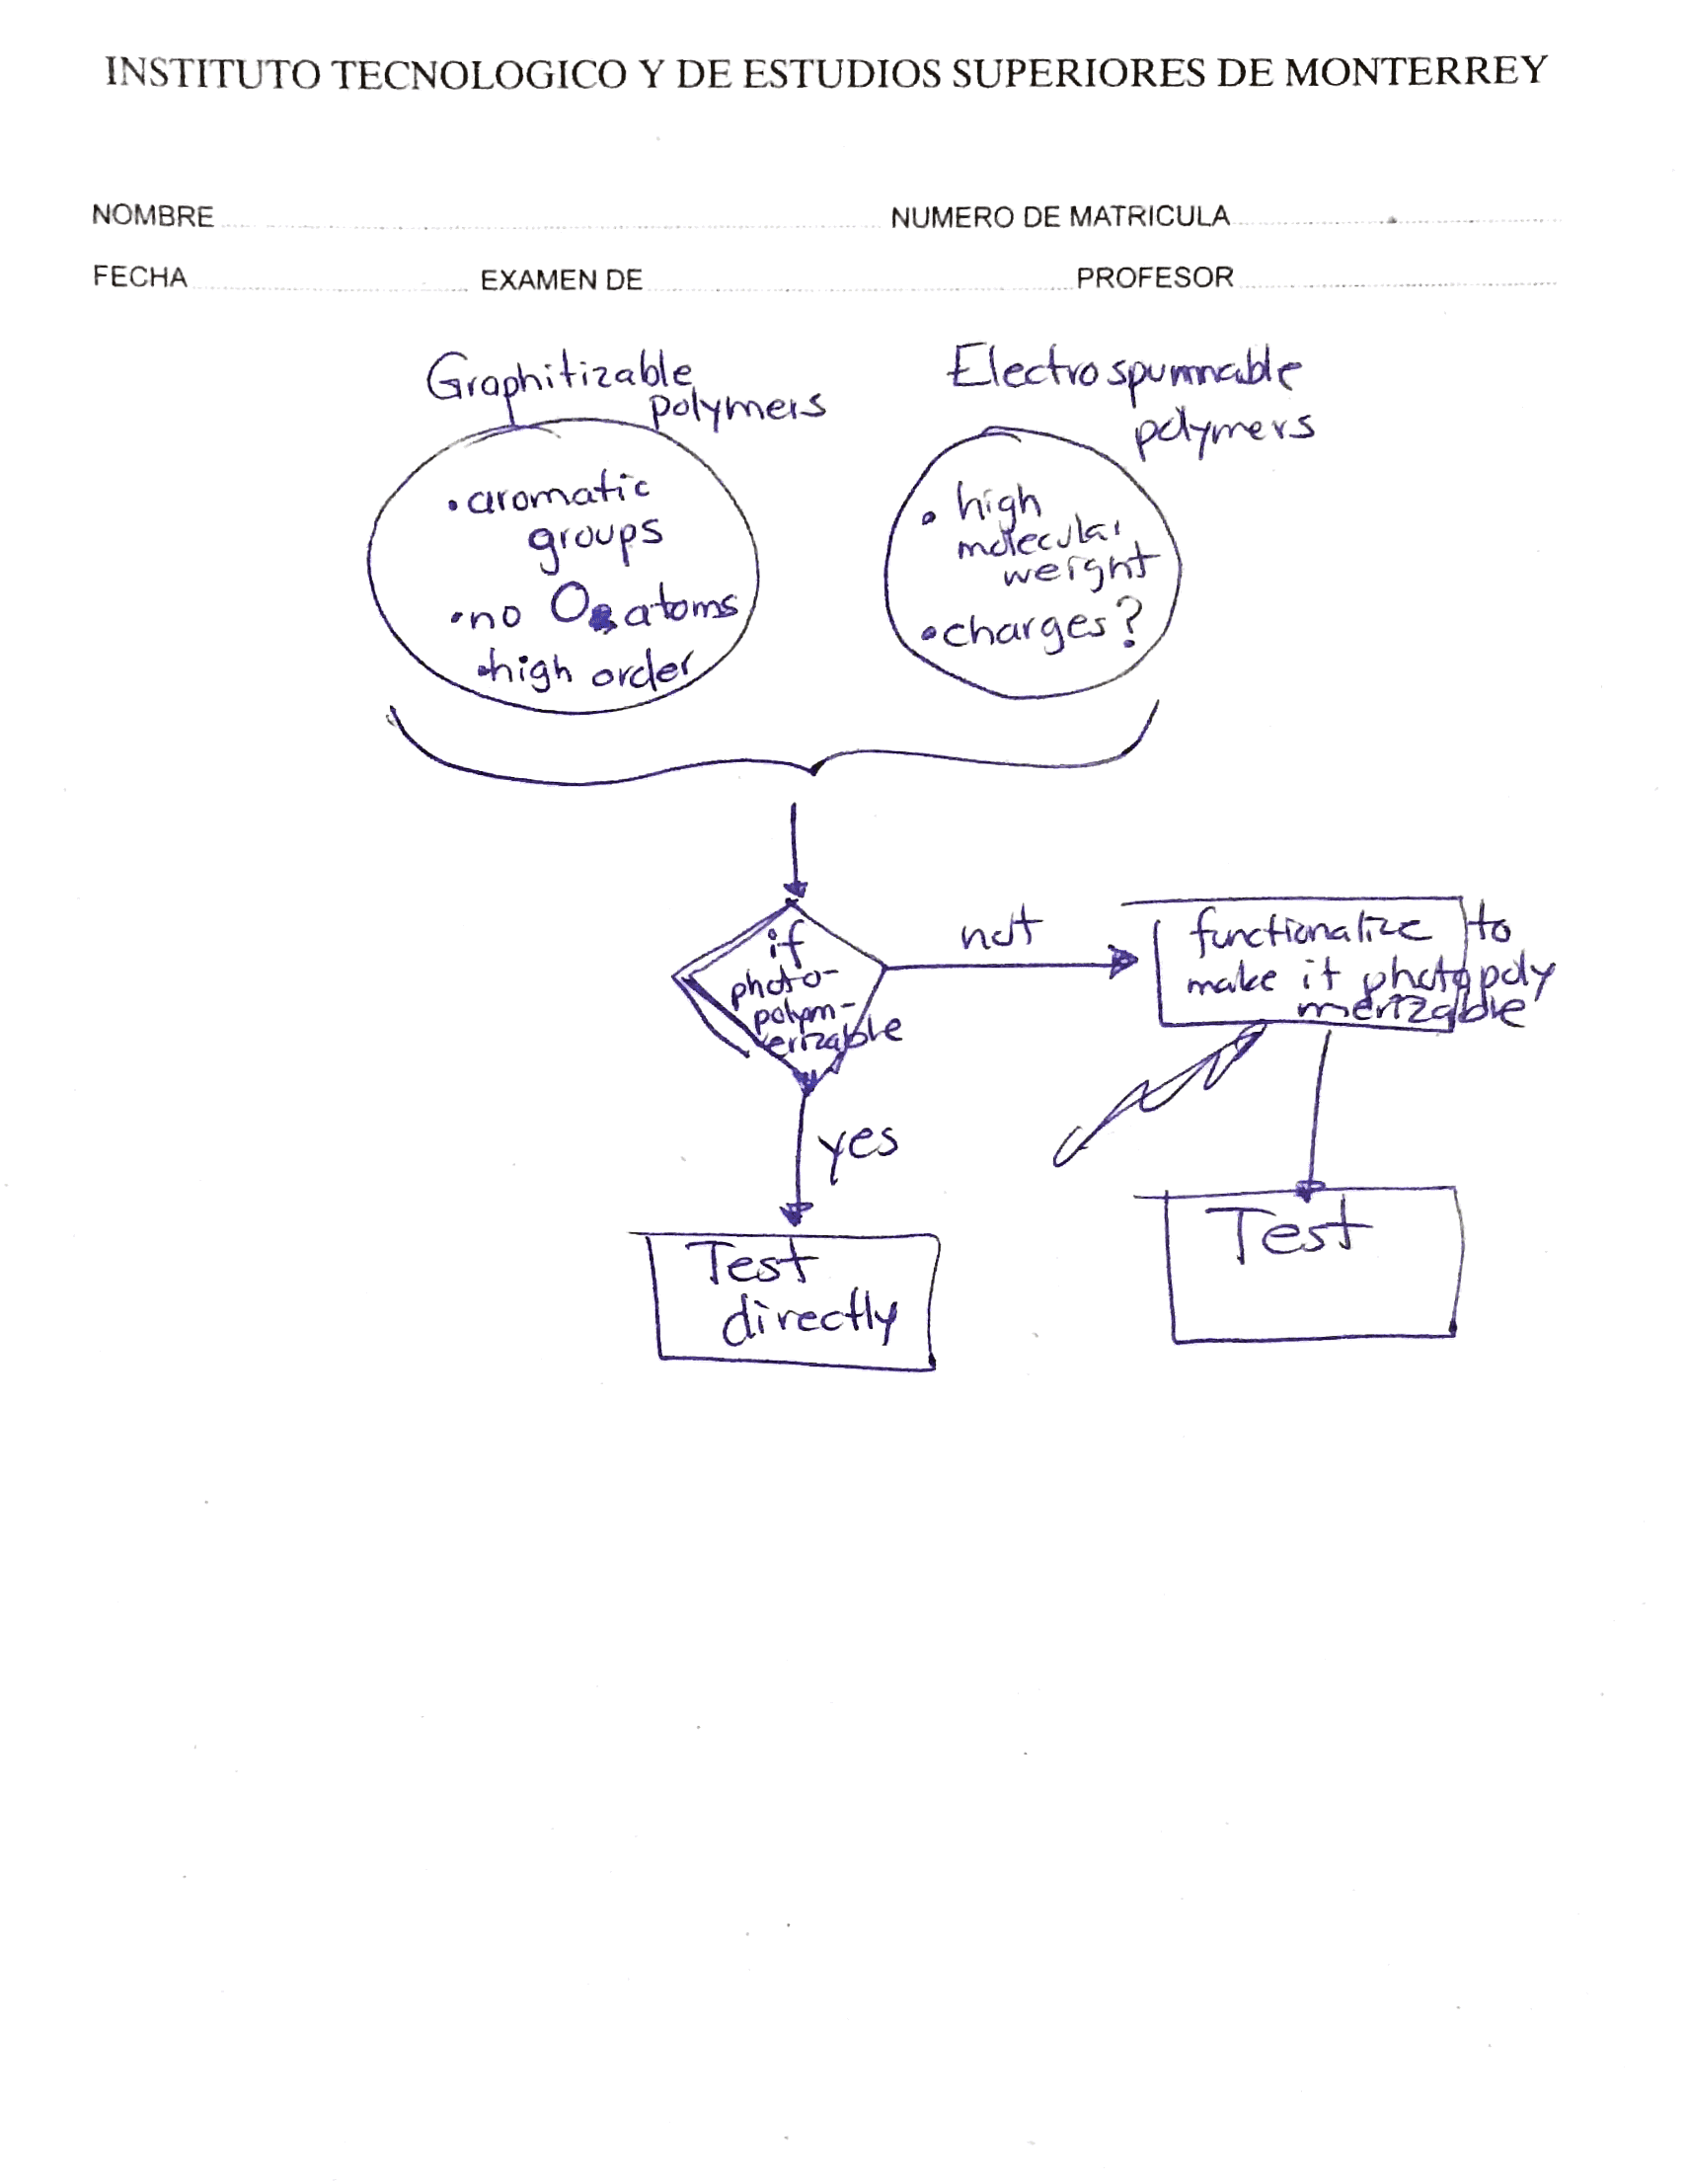 INSTITUTO TECNOLOGICO Y DE ESTUDIOS SUPERIORES DE MONTERREY
NOMBRE NUMERO DE MATRICULA
FECHA EXAMEN DE PROFESOR
Graphitizable
polymers
• aromatic
groups
• no O atoms
• high order
Electrospunnable
polymers
• high
molecular
weight
• charges?
if
photo-
polym-
erizable
not
functionalize to
make it photopoly
merizable
yes
Test
directly
Test